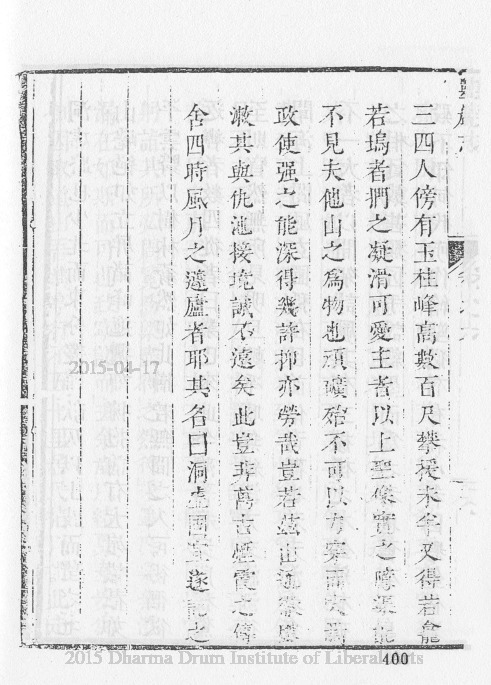 三四人傍有玉柱峰高數百尺攀援未半又得岩龕
若塢者捫之凝滑可愛主者以上聖像實之
不見夫他山之為物也頑礦殆不可以力穿
政使强之能深得幾許抑亦勞哉豈若茲山
其與仇池接境誠不遠矣此豈非萬古煙霞之
含四時風月之蘧廬者耶其名曰洞壺因室遂記之
2015-04-17
2015 Dharma Drum Institute of Liberal Arts
400